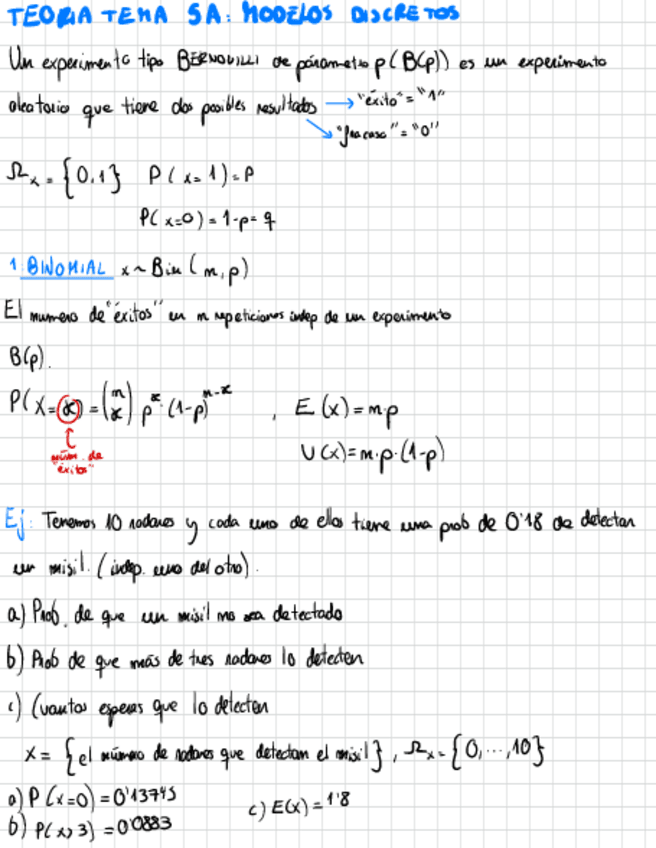 TEORIA TEMA 5A: MODELOS DISCRETOS
Un experimento tipo BERNOUILLI de párametro p (B(p)) es un experimento
aleatorio que tiene dos posibles resultados → "éxito" = "1"
"fracaso" = "0"
Ωx = {0,1} P(x=1) = p
P(x=0) = 1-p = q
1. BINOMIAL x ~ Bin (n, p)
El numero de "éxitos" en n repeticiones indep de un experimento
B(p).
P(X=x) = (n x) p^x · (1-p)^n-x , E(x) = n·p
núm. de éxitos"
V(x) = n·p·(1-p)
Ej: Tenemos 10 radares y cada uno de ellos tiene una prob de 0'18 de detectar
un misil. (indep. uno del otro).
a) Prob. de que un misil no sea detectado
b) Prob de que más de tres radares lo detecten
c) Cuantos esperas que lo detecten
X = {el número de radares que detectan el misil}, Ωx = {0,...,10}
a) P(x=0) = 0'13745
c) E(x) = 1'8
b) P(x>3) = 0'0883